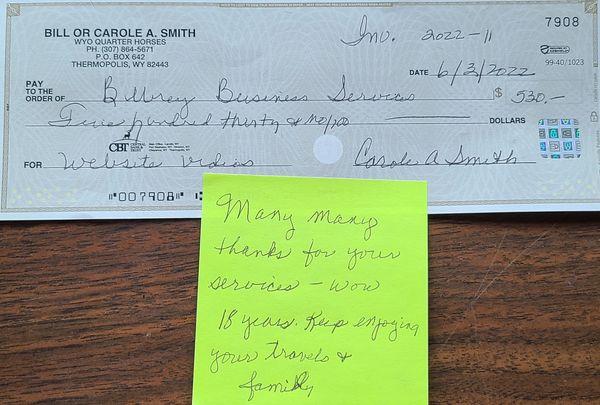 7908
BILL OR CAROLE A. SMITH
WYO QUARTER HORSES
PH. (307) 864-5671
P.O. BOX 642
THERMOPOLIS, WY 82443
Inv. 2022-11
99-40/1023
DATE 6/3/2022
PAY TO THE ORDER OF Billbrey Business Services $ 530.-
Five hundred thirty & no/100 DOLLARS
CBT CENTRAL BANK & TRUST
FOR Website videos Carole A Smith
⑈007908⑈
Many many
thanks for your
services - Wow
18 years. Keep enjoying
your travels &
family